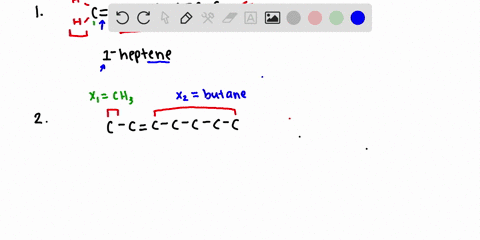 1.
H
H C=
1-heptene
x₁ = CH₃ x₂ = butane
2. C-C=C-C-C-C-C